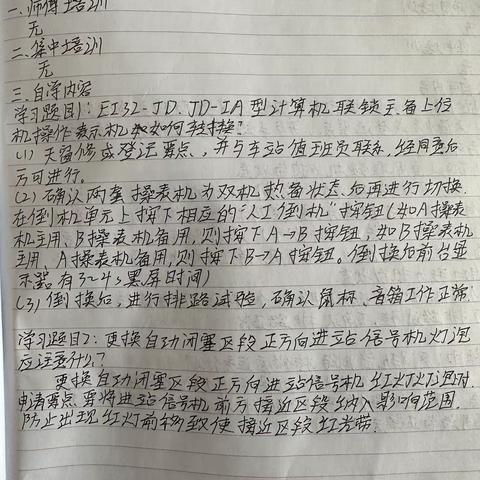 一、师傅培训
无
二、集中培训
无
三、自学内容
学习题目1：EI32-JD、JD-IA型计算机联锁主、备上位
机操作表示机如何转换？
(1) 天窗修或登记要点，并与车站值班员联系，经同意后
方可进行。
(2) 确认两套操表机为双机热备状态后再进行切换，
在倒机单元上按下相应的“人工倒机”按钮（如A操表
机主用、B操表机备用，则按下A→B按钮，如B操表机
主用、A操表机备用，则按下B→A按钮。倒换后前台显
示器有3～4s黑屏时间）
(3) 倒换后，进行排路试验，确认鼠标、音箱工作正常.
学习题目2：更换自动闭塞区段正方向进站信号机灯泡
应注意什么？
更换自动闭塞区段正方向进站信号机红灯灯泡时，
申请要点，要将进站信号机前方接近区段纳入影响范围，
防止出现红灯前移致使接近区段红光带.